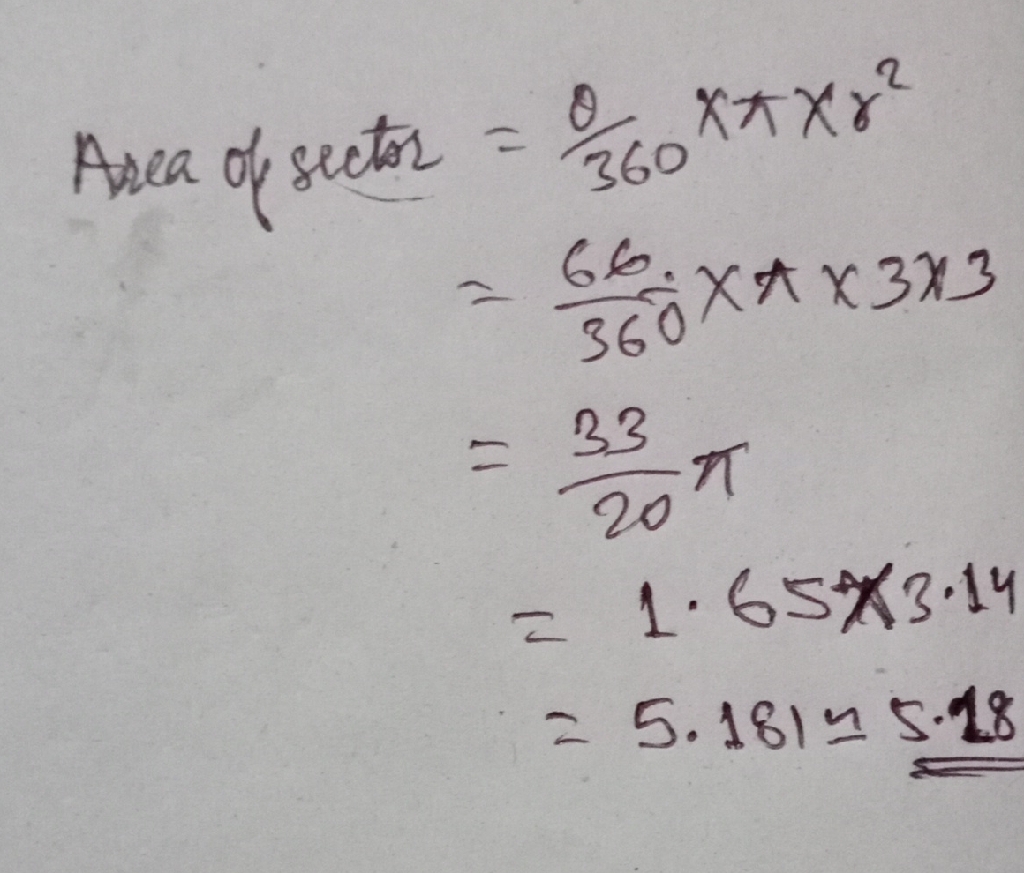 Area of sector = θ/360 × π × r²
= 66/360 × π × 3×3
= 33/20 π
= 1.65×3.14
= 5.181 ≃ 5.18